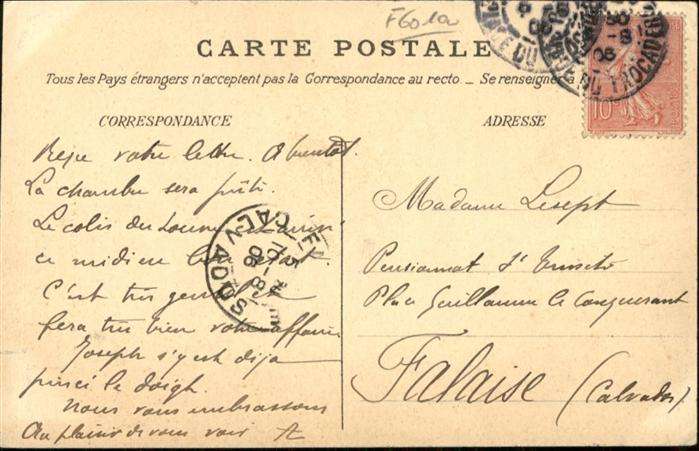 F60 10
CARTE POSTALE
Tous les Pays étrangers n'acceptent pas la Correspondance au recto _ Se renseigner à
PLACE DU TROCADERO
8
06
10
CORRESPONDANCE
ADRESSE
Reçu votre lettre. A bientôt.
La chambre sera prête.
Le colis du Louvre est arrivé
ce midi
C'est très gentil
fera très bien votre affaire
Joseph s'y est déjà
pincé le doigt.
Nous vous embrassons
Au plaisir de vous voir
CALVADOS
10
8
06
Madame
Pensionnat d'
Place Guillaume le Conquerant
Falaise (Calvados)